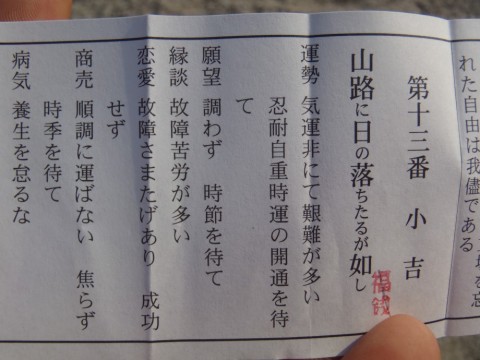 れた自由は我儘である
第十三番 小吉
山路に日の落ちたるが如し
福銭
運勢 気運非にて艱難が多い
忍耐自重時運の開通を待
て
願望 調わず 時節を待て
縁談 故障苦労が多い
恋愛 故障さまたげあり 成功
せず
商売 順調に運ばない 焦らず
時季を待て
病気 養生を怠るな